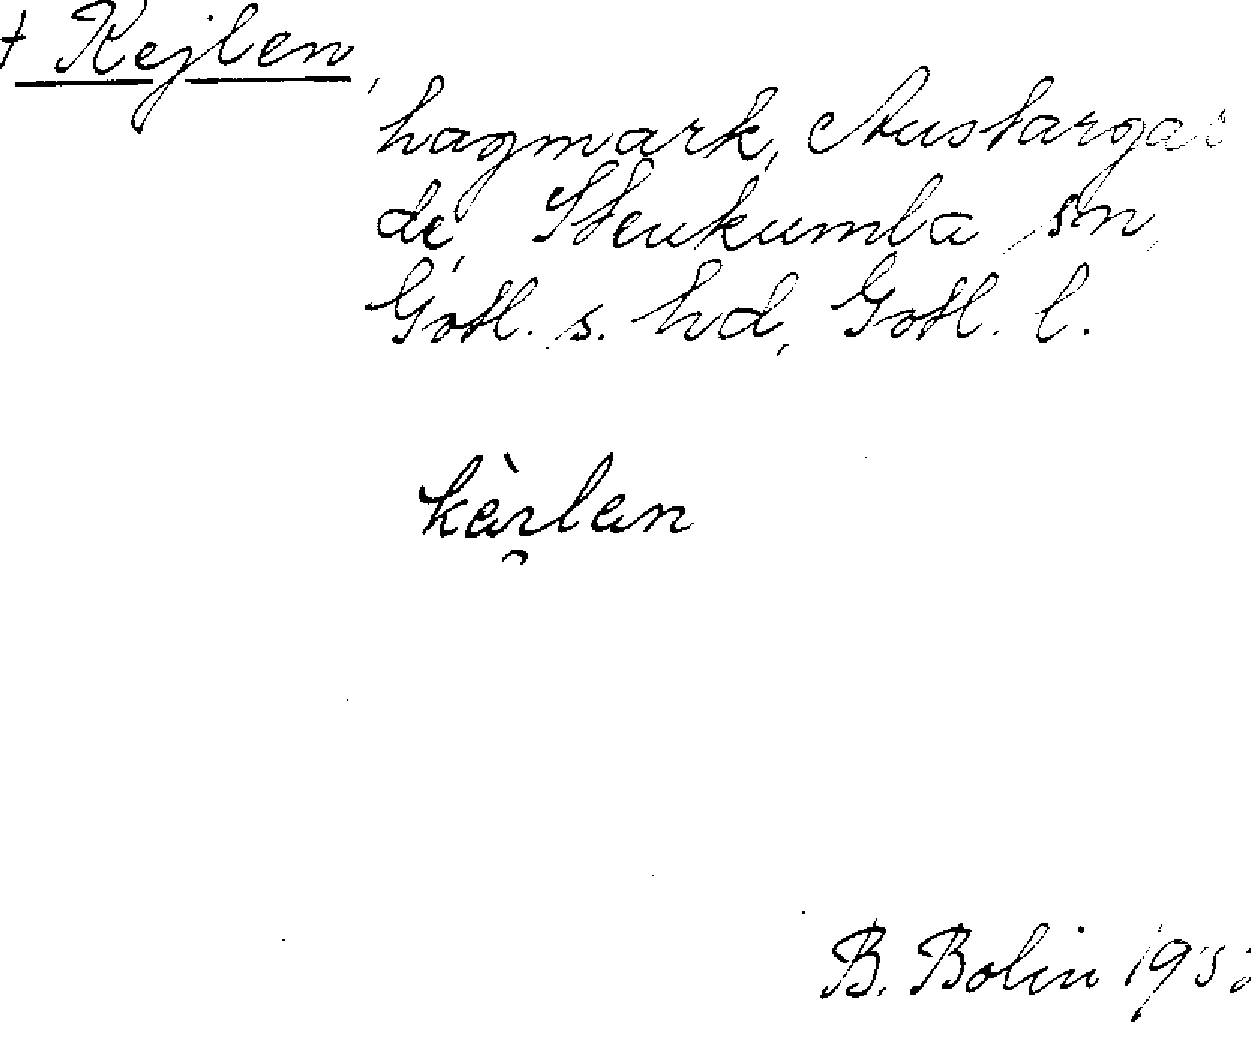 † Kejlen,
hagmark, Austargar
de, Stenkumla sn,
Gotl. s. hd, Gotl. l.
kàrlan
B. Bolin 195